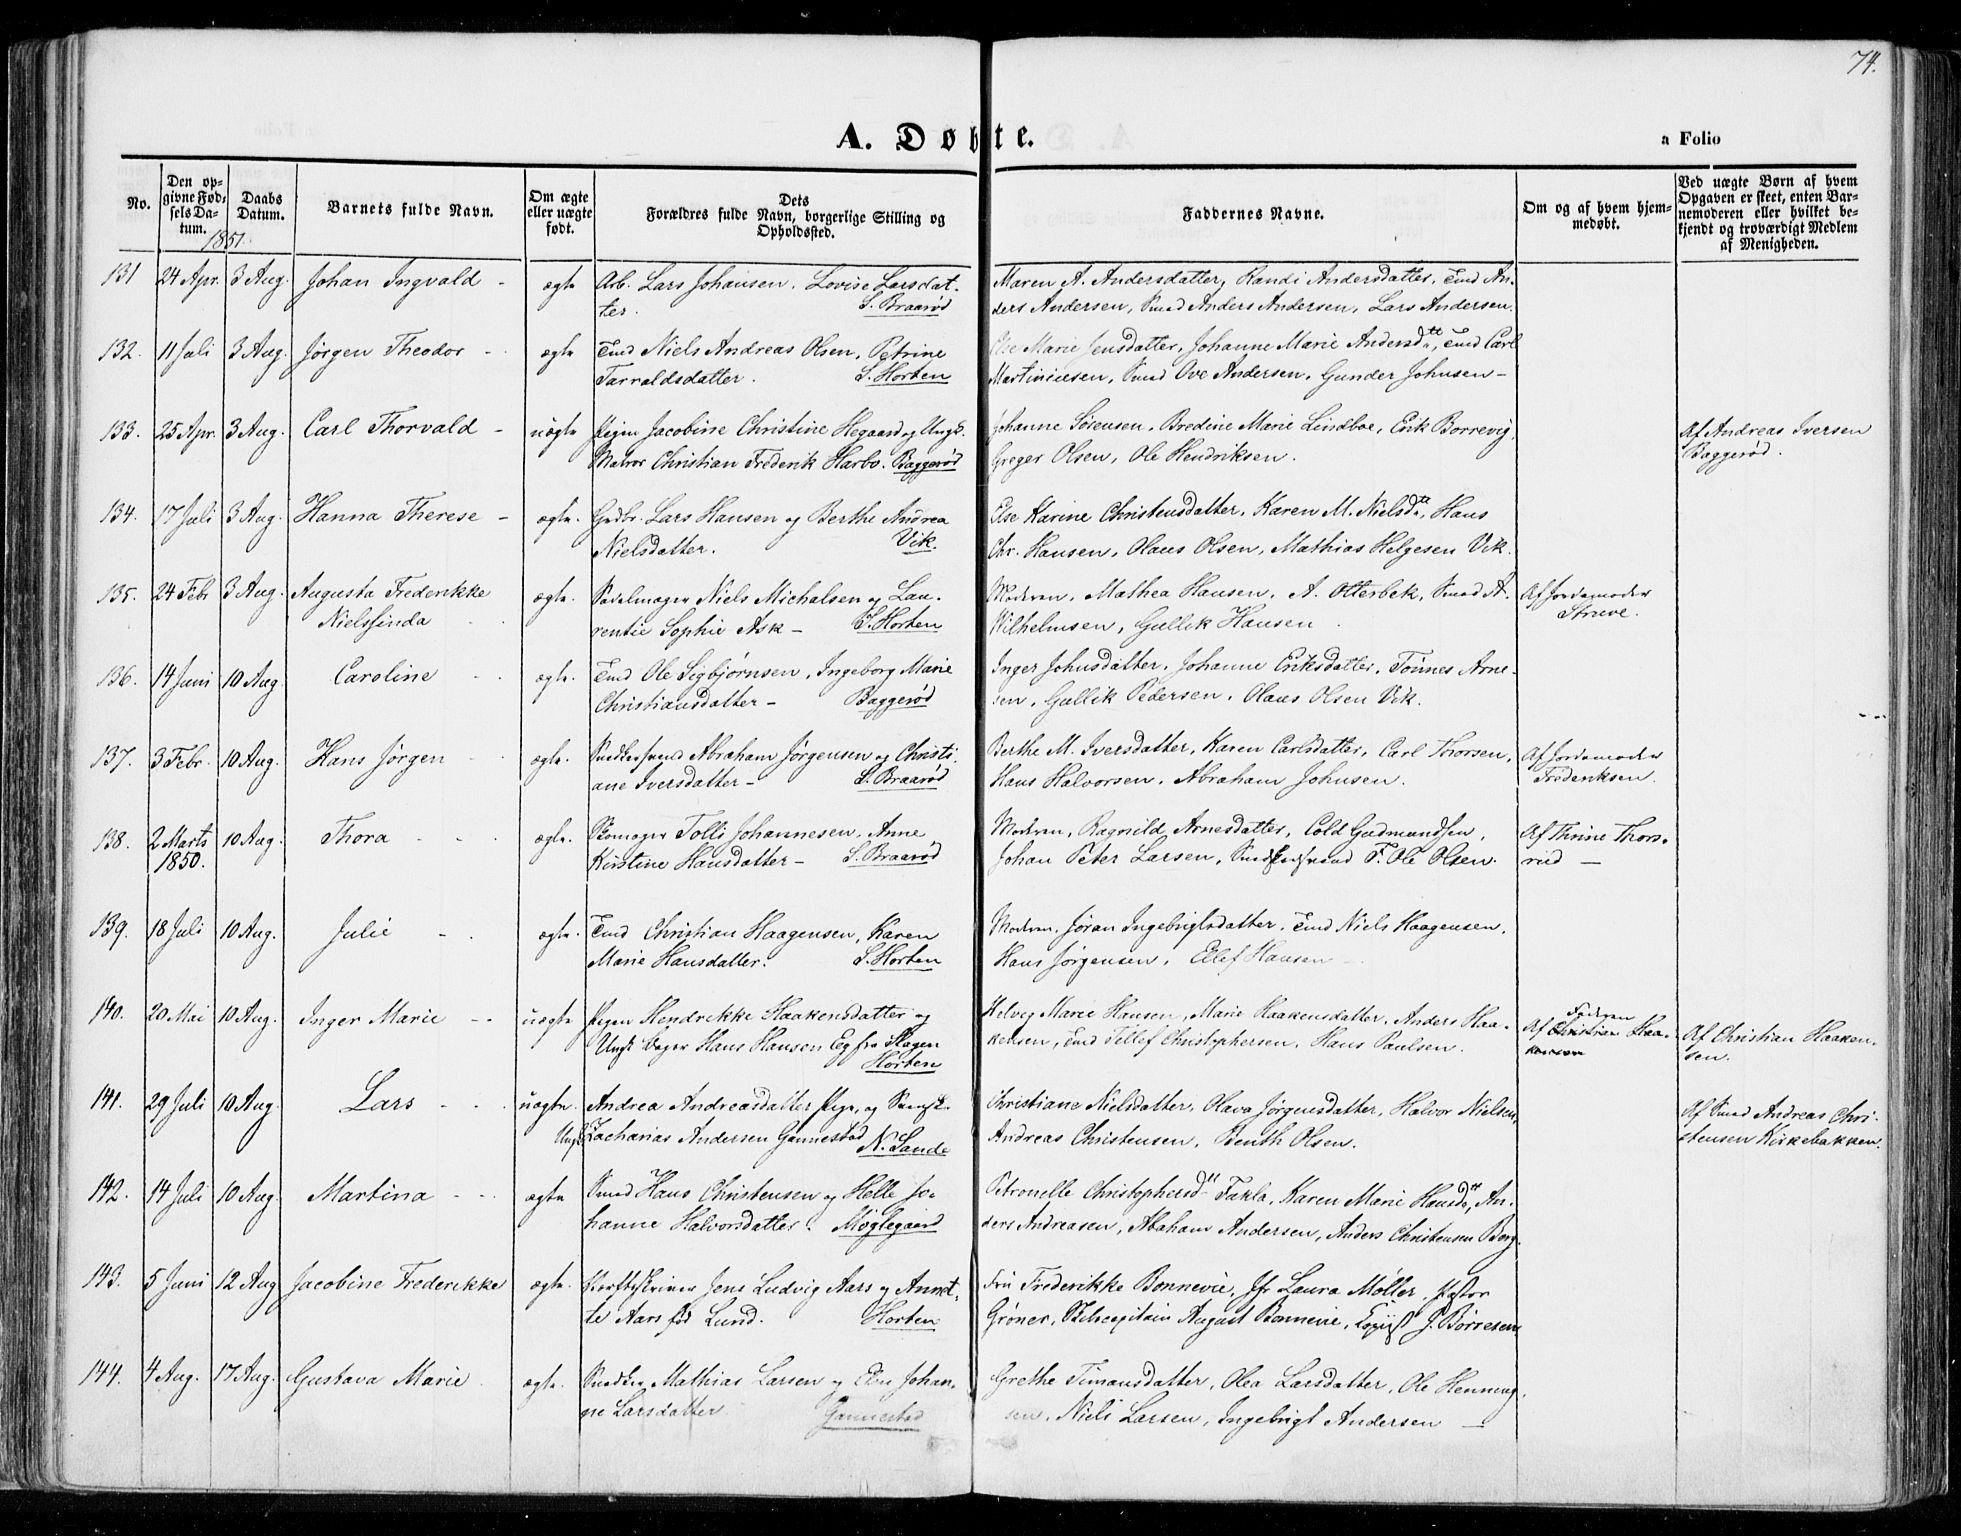 74.
A. Døbte.
a Folio
No.
Den op-
givne Fød-
sels Da-
tum.
Daabs
Datum.
Barnets fulde Navn.
Om ægte
eller uægte
født.
Dets
Forældres fulde Navn, borgerlige Stilling og
Opholdssted.
Faddernes Navne.
Om og af hvem hjem-
medøbt.
Ved uægte Børn af hvem
Opgaven er skeet, enten Bar-
nemoderen eller hvilket be-
kjendt og troværdigt Medlem
af Menigheden.
1851.
131 24 Apr. 3 Aug. Johan Ingvald - ægte Arb. Lars Johansen. Lovise Larsdat-
ter. S. Braarød
Maren A. Andersdatter, Randi Andersdatter, Tmd An-
ders Andersen, Smed Anders Andersen, Lars Andersen.
132. 11 Juli 3 Aug. Jørgen Theodor - ægte Tmd Niels Andreas Olsen, Petrine
Tarraldsdatter. S. Horten
Else Marie Jensdatter, Johanne Marie Andersdtt, Tmd Carl
Martiniusen, Smed Ove Andersen, Gunder Johnsen -
133. 25 Apr. 3 Aug. Carl Thorvald - uægte Pigen Jacobine Christine Hegaard og Ungk.
Matros Christian Frederik Harbo. Baggerød
Johanne Sørensen, Bredine Marie Lindboe, Erik Borrevig,
Greger Olsen, Ole Hendriksen.
Af Andreas Iversen
Baggerød.
134. 17 Juli 3 Aug. Hanna Therese - ægte. Grdbr. Lars Hansen og Berthe Andrea
Nielsdatter. Vik.
Else Karine Christensdatter, Karen M. Nielsdtt, Hans
Chr. Hansen, Olaus Olsen, Mathias Helgesen Vik.
135. 24 Febr 3 Aug. Augusta Frederikke
Nielsfinda ægte. Sadelmager Niels Michalsen og Lau-
rentie Sophie Ask - S. Horten
Moderen, Mathea Hansen, A. Otterbek, Smed A.
Wilhelmsen, Gullik Hansen.
Af Jordemoder
Struve.
136. 14 Juni 10 Aug. Caroline ægte. Tmd Ole Sigbjørnsen, Ingeborg Marie
Christiansdatter - Baggerød
Inger Johnsdatter, Johanne Eriksdatter, Tønnes Arne-
sen, Gullik Pedersen, Olaus Olsen Vik.
137. 3 Febr. 10 Aug. Hans Jørgen ægte. Snedkersvend Abraham Jørgensen og Christi-
ane Iversdatter - S. Braarød
Berthe M. Iversdatter, Karen Carlsdatter, Carl Thorsen,
Hans Halvorsen, Abraham Johnsen.
Af Jordemoder
Frederiksen.
138. 2 Marts
1850. 10 Aug. Thora - ægte. Skomager Tolli Johannesen. Anne
Kirstine Hansdatter - S. Braarød
Moderen, Ragnild Arnesdatter, Cold Gudmundsen,
Johan Peter Larsen, F. Ole Olsen.
Af Thrine Thors-
rud -
139. 18 Juli 10 Aug. Julie - ægte. Tmd Christian Haagensen, Karen
Marie Hansdatter. S. Horten
Moderen, Jøran Ingebrigtsdatter, Tmd Niels Haagensen,
Hans Jørgensen, Ellef Hansen -
140. 20 Mai 10 Aug. Inger Marie - uægte Pigen Hendrikke Haakensdatter og
Ungk Bager Hans Hansen Eg fra Skagen
Horten
Helvig Marie Hansen, Marie Haakensdatter, Anders Haa-
kensen, Tmd Tellef Christophersen, Hans Paulsen.
Faderen
Af Christian Haa-
kensen
Af Christian Haaken-
sen.
141. 29 Juli 10 Aug. Lars - uægte. Andrea Andreasdatter Pige, og
Ungk Zacharias Andersen Gannestad N. Sande
Christiane Nielsdatter, Olava Jørgensdatter, Halvor Nielsen,
Andreas Christensen, Benth Olsen.
Af Smed Andreas Chri-
stensen Kirkebakken.
142. 14 Juli 10 Aug. Martina - ægte Smed Hans Christensen og Helle Jo-
hanne Halvorsdatter. Møglegaard
Petronelle Christophersdtt Takla, Karen Marie Hansdtt, An-
ders Andreasen, Abaham Andersen, Anders Christensen Borg.
143. 5 Juni 12 Aug Jacobine Frederikke ægte. Værftsskriver Jens Ludvig Aars og Annet-
te Aars fød Lund. Horten
Fru Frederikke Bonnevie, Jfr Laura Møller, Pastor
Grøner, Skibscapitain August Bonnevie, Kopist J. Børresen
144. 4 Aug. 17 Aug. Gustava Marie ægte. Snedker Mathias Larsen og Elen Johan-
ne Larsdatter Gannestad
Grethe Timansdatter, Olea Larsdatter, Ole Henning-
sen, Niels Larsen, Ingebrigt Andersen -